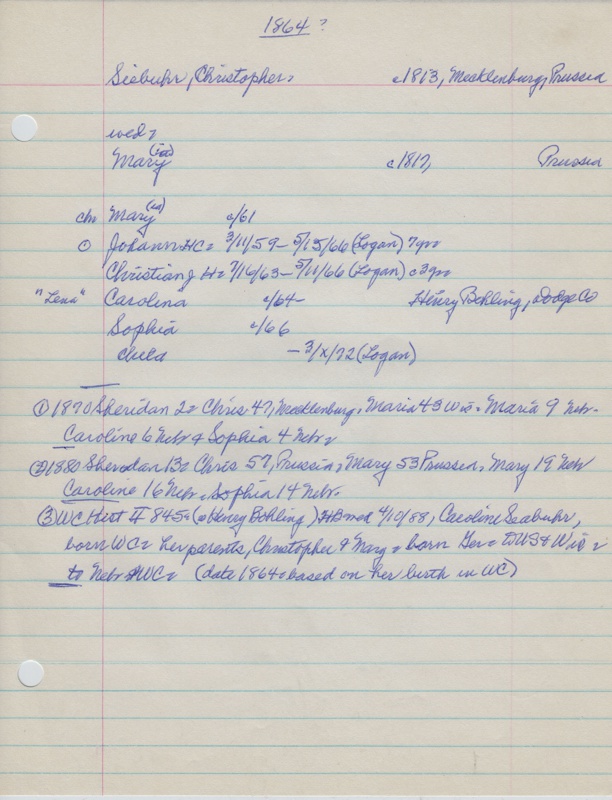 1864?
Siebuhr, Christopher, c1813, Mecklenburg, Prussia
wed,
Mary(ia) c1817, Prussia
ch Mary(ia) c/61
① Johann HC, 3/11/59 – 5/15/66 (Logan) 7yr
Christian J H, 7/16/63 – 5/11/66 (Logan) c3yr
"Lena" Carolina c/64– Henry Bohling, Dodge Co
Sophia c/66
child – 3/x/72 (Logan)
① 1870 Sheridan 2, Chris 47, Mecklenburg, Maria 43 Wis, Maria 9 Nebr.
Caroline 6 Nebr & Sophia 4 Nebr,
② 1880 Sheridan 13, Chris 57, Prussia, Mary 53 Prussia, Mary 19 Nebr
Caroline 16 Nebr, Sophia 14 Nebr.
③ WC Hist II 845, (Henry Bohling) HB med 4/10/88, Caroline Seabuhr,
born WC, her parents, Christopher & Mary, born Ger, to US & Wis,
to Nebr & WC, (date 1864, based on her birth in WC)